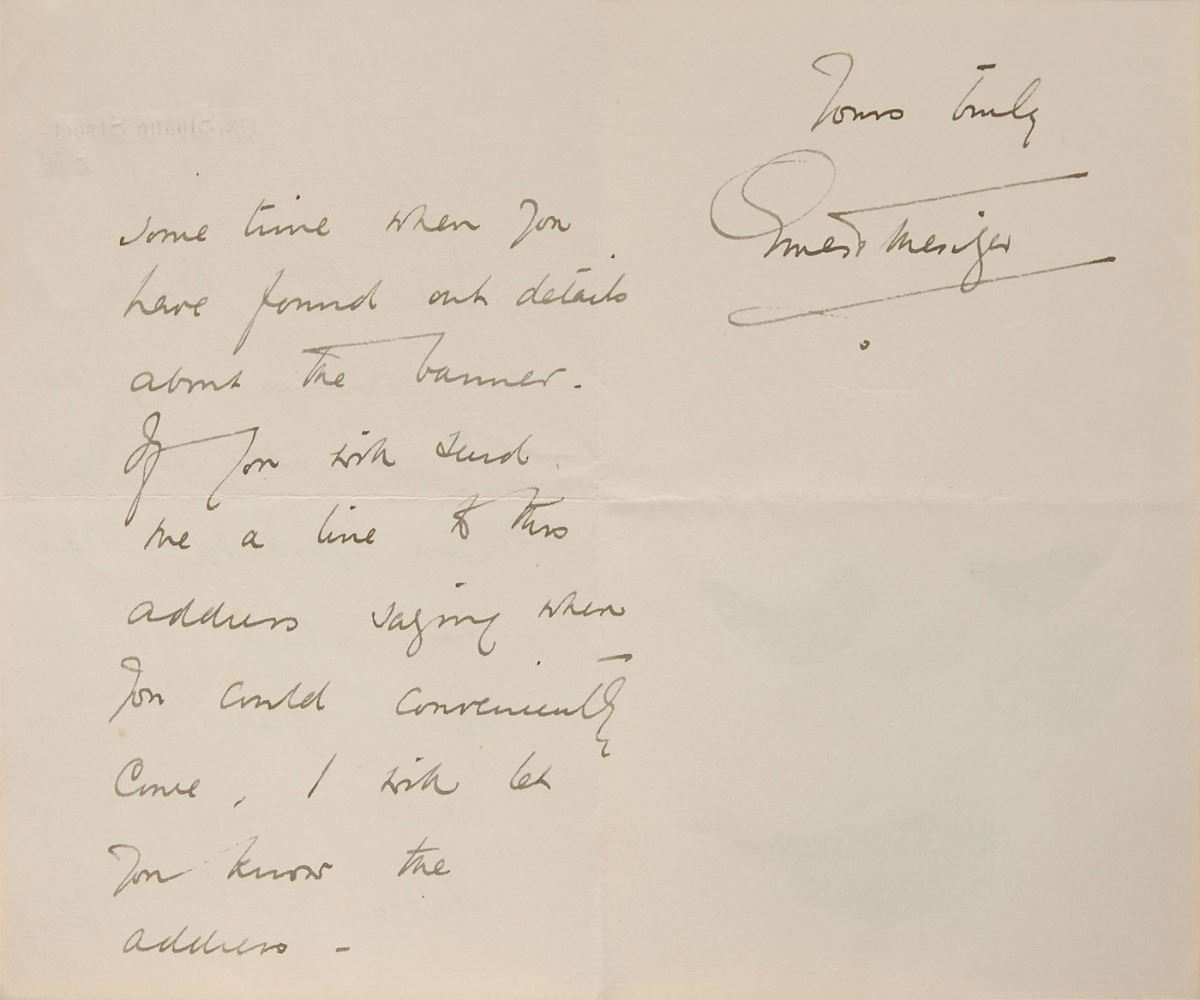 some time when you
have found out details
about the banner.
If you will send
me a line to this
address saying when
you could conveniently
come, I will let
you know the
address -
Yours truly
Ernest Thesiger
Sloane Street